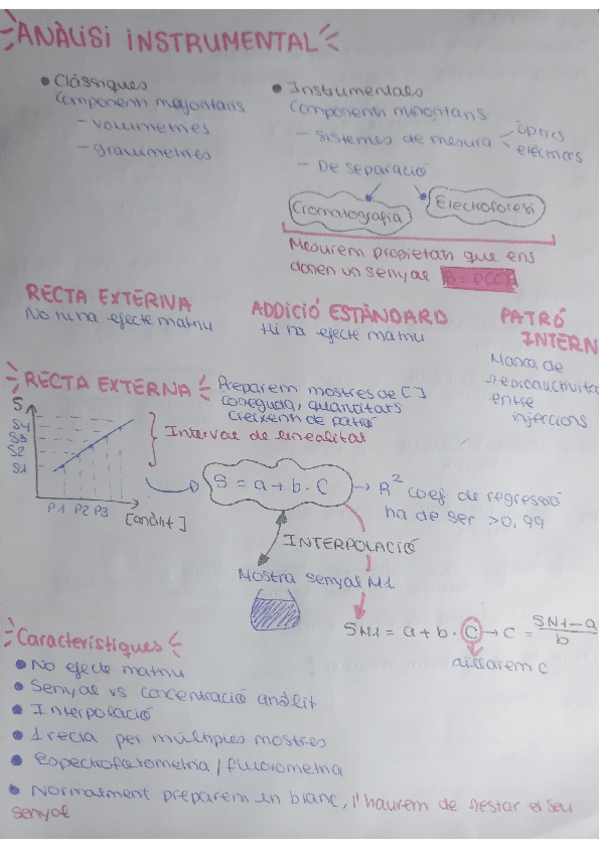 ANÀLISI INSTRUMENTAL
• Clàssiques
Components majoritaris
- volumetries
- gravimetries
• Instrumentals
Components minoritaris
- Sistemes de mesura
òptics
elèctrics
- De separació
Cromatografia
Electroforesi
Mesurem propietats que ens
donen un senyal
RECTA EXTERNA
No hi ha efecte matriu
ADDICIÓ ESTÀNDARD
Hi ha efecte matriu
PATRÓ
INTERN
Manca de
reproductivita
entre
injeccions
RECTA EXTERNA
Preparem mostres de [ ]
coneguda, quantitats
creixents de patró
S
S4
S3
S2
S1
P1 P2 P3
[anàlit]
Interval de linealitat
S = a + b · C
R² coef de regressió
ha de ser >0,99
INTERPOLACIÓ
Mostra senyal M1
SM1 = a + b · C → C = SM1 - a / b
aïllarem C
Característiques
• No efecte matriu
• Senyal vs concentració anàlit
• Interpolació
• 1 recta per múltiples mostres
• Espectrofotometria / fluorometria
• Normalment preparem un blanc, i haurem de restar el seu
senyal